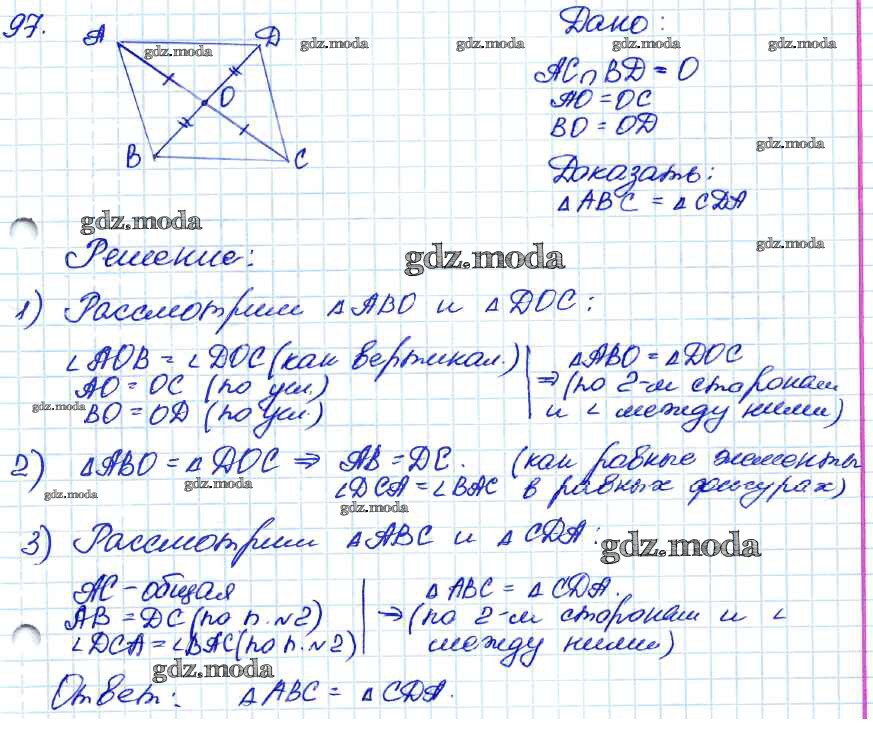 97.
A
D
O
B
C
gdz.moda
gdz.moda
gdz.moda
gdz.moda
Дано:
AC∩BD = O
AO = OC
BO = OD
gdz.moda
Доказать:
△ABC = △CDA
gdz.moda
gdz.moda
gdz.moda
Решение:
1) Рассмотрим △ABO и △DOC:
∠AOB = ∠DOC (как вертикал.)
AO = OC (по усл.)
BO = OD (по усл.)
△ABO = △DOC
⇒ (по 2-м сторонам
и ∠ между ними)
gdz.moda
2) △ABO = △DOC ⇒ AB = DC. (как равные элементы
∠DCA = ∠BAC в равных фигурах)
gdz.moda
gdz.moda
gdz.moda
3) Рассмотрим △ABC и △CDA:
gdz.moda
AC - общая
AB = DC (по п. №2)
∠DCA = ∠BAC (по п. №2)
△ABC = △CDA.
⇒ (по 2-м сторонам и ∠
между ними)
gdz.moda
Ответ: △ABC = △CDA.